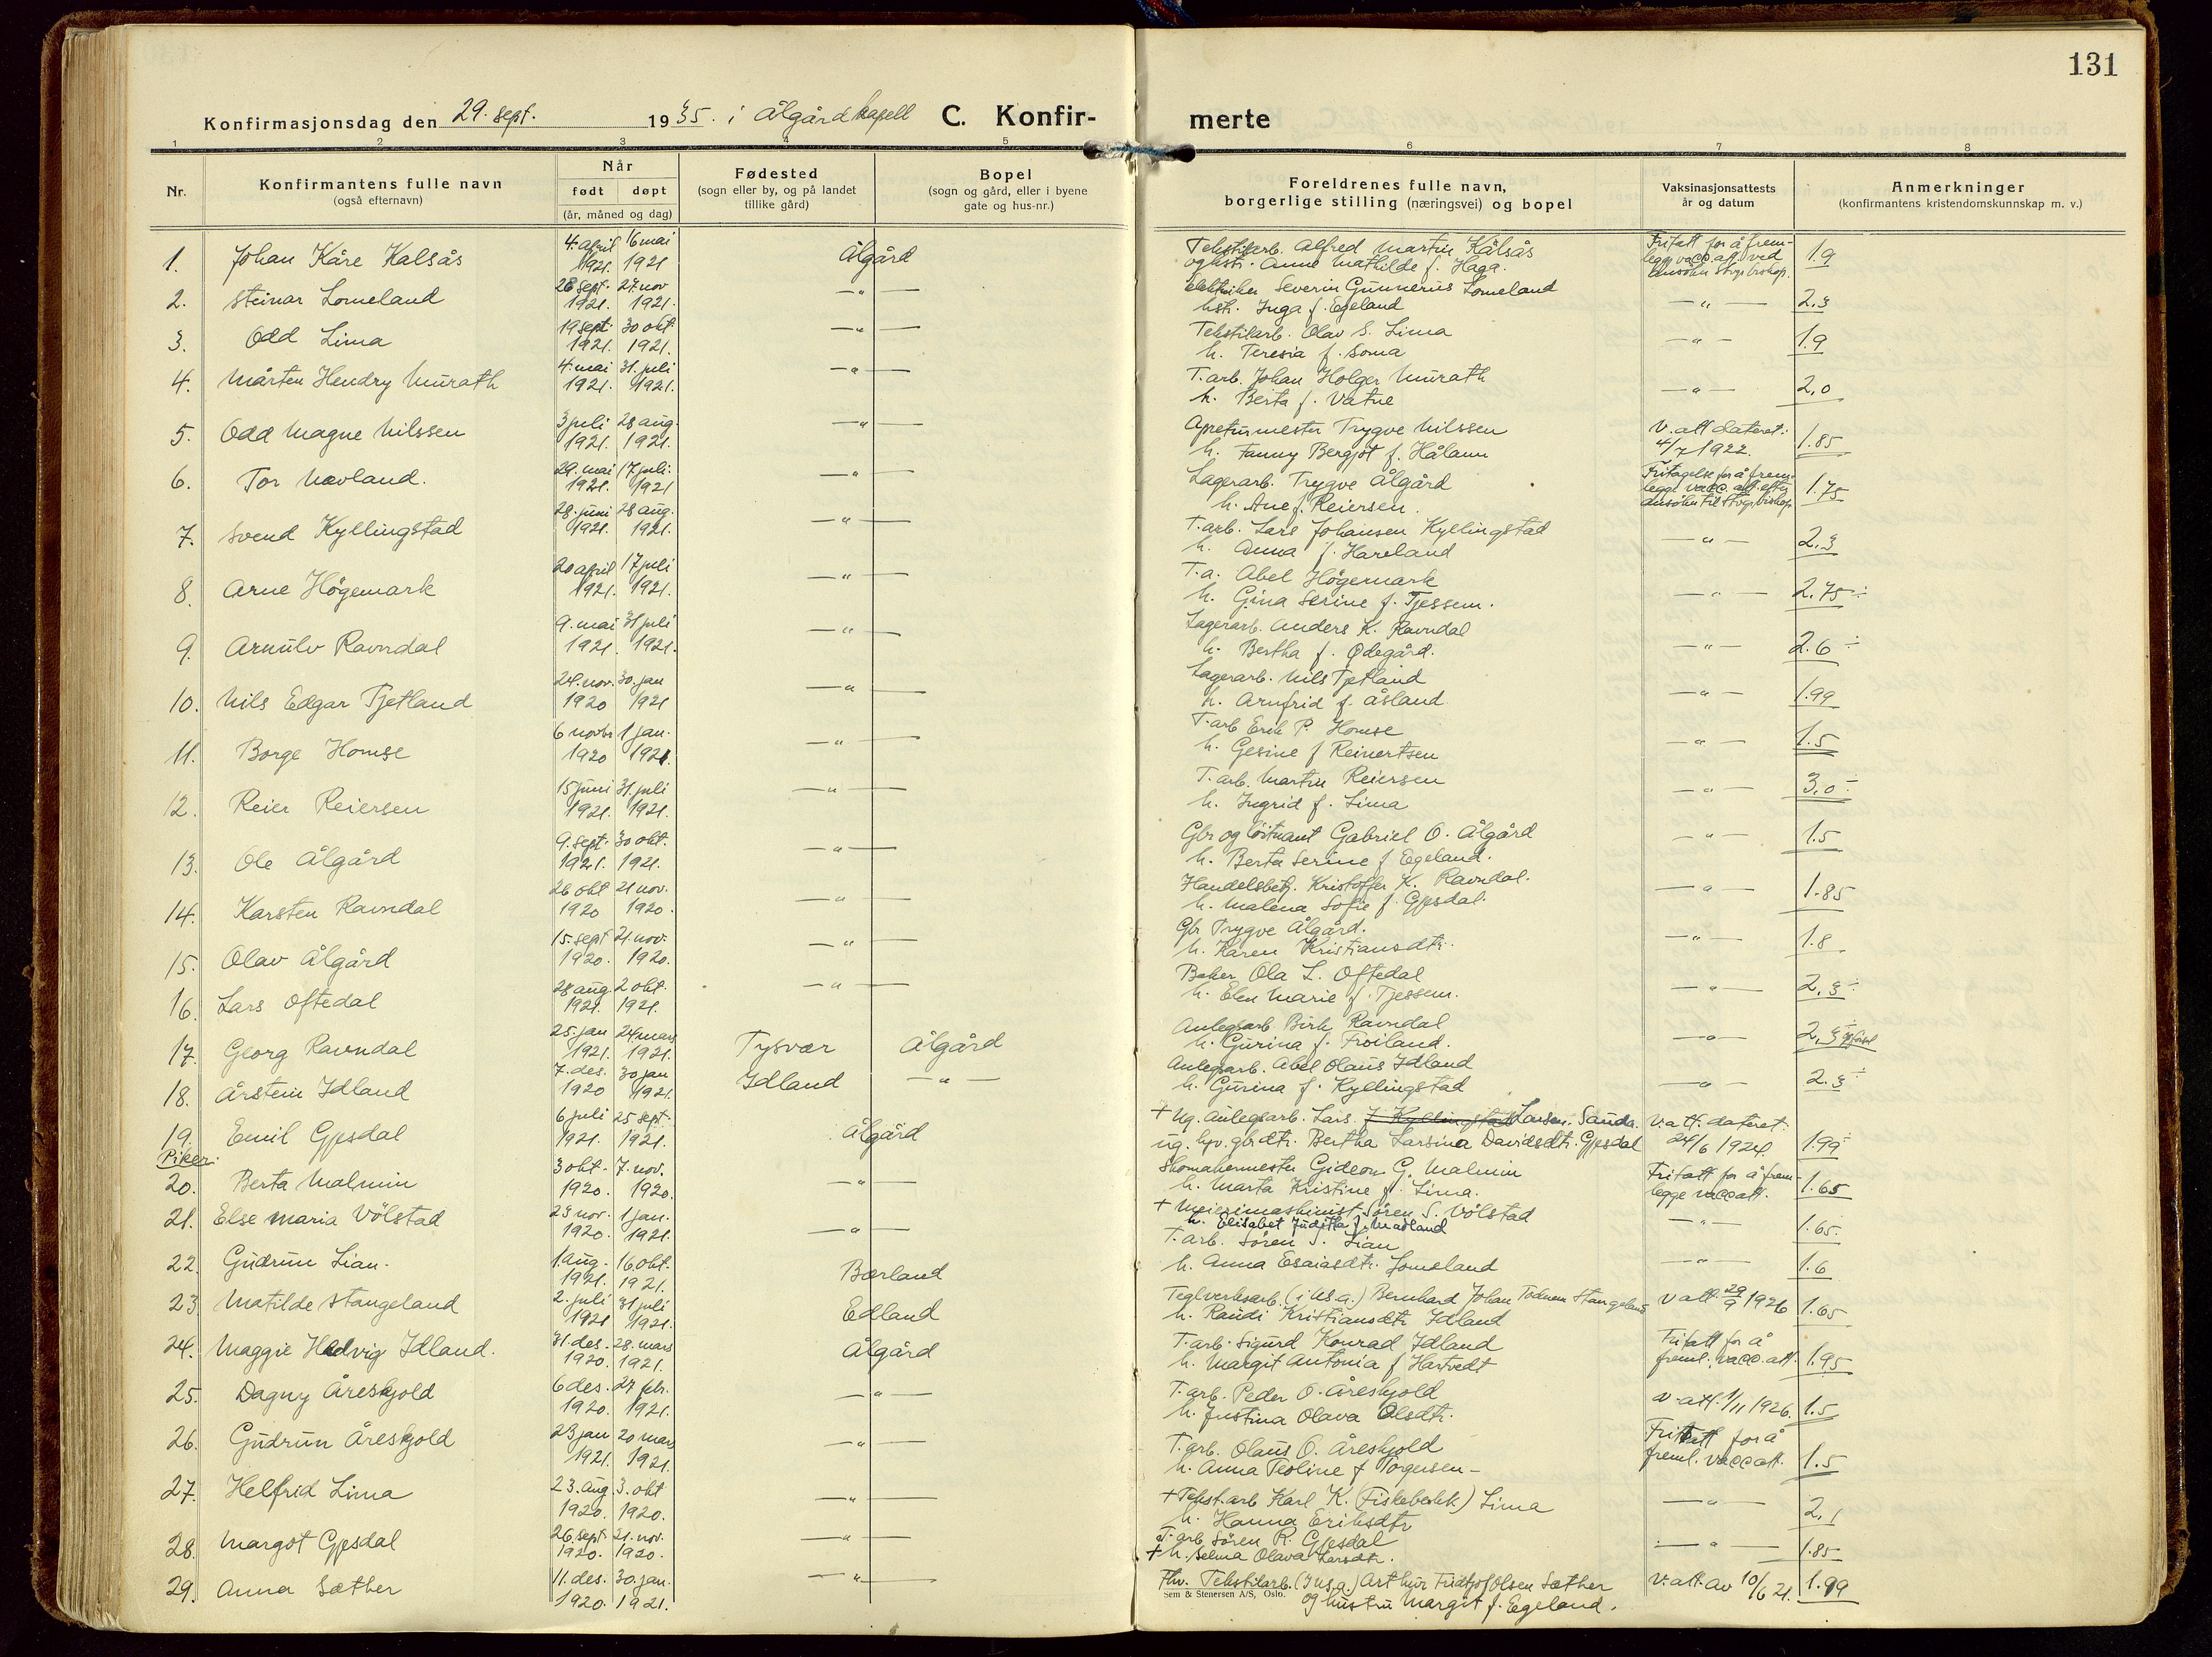 131
Konfirmasjonsdag den 29. sept. 1935. i Ålgård kapell C. Konfir-
merte
1 2 3 4 5 6 7 8
Nr.
Konfirmantens fulle navn
(også efternavn)
Når
født døpt
(år, måned og dag)
Fødested
(sogn eller by, og på landet
tillike gård)
Bopel
(sogn og gård, eller i byene
gate og hus-nr.)
Foreldrenes fulle navn,
borgerlige stilling (næringsvei) og bopel
Vaksinasjonsattests
år og datum
Anmerkninger
(konfirmantens kristendomskunnskap m. v.)
1. Johan Kåre Kalsås 4. april 1921. 16 mai 1921 Ålgård
Tekstilarb. Alfred Martin Kålsås
og hstr. Anne Mathilde f. Haga.
Fritatt for å frem-
legg. vacc. att. ved
ansøkn. stvgr. biskop. 1.9
2. Steinar Lomeland 28 sept. 1921. 27. nov 1921. —"—
Elektriker Severin Gunnerius Lomeland
hstr. Inga f. Egeland —"— 2.3
3. Odd Lima 19 sept. 1921. 30 okt. 1921. —"—
Tekstilarb. Olav S. Lima
h. Teresia f. Soma —"— 1.9
4. Mårten Hendry Murath 4. mai 1921. 31. juli 1921. —"—
T. arb. Johan Holger Murath
h. Berta f. Vatne —"— 2,0
5. Odd Magne Nilssen 3 juli 1921. 28 aug. 1921. —"—
Apreturmester Trygve Nilssen
h. Fanny Bergjot f. Hålann
V. att datert:
4/7 1922. 1.85
6. Tor Nævland. 29. mai 1921. 17 juli. 1921 —"—
Lagerarb. Trygve Ålgård
h. Ane f. Reiersen.
Fritagelse for å frem-
legge vacc. att. efter
ansøkn til stvgr. biskop 1.75
7. Svend Kyllingstad 28. juni 1921. 28 aug. 1921. —"—
T. arb. Lars Johansen Kyllingstad
h. Anna f. Hareland —"— 2.3
8. Arne Högemark 20 april 1921. 17 juli 1921. —"—
T. a. Abel Högemark
h. Gina Serine f. Tjessem. —"— 2.75 ÷
9. Arnulv Ravndal 9. mai 1921. 31 juli 1921. —"—
Lagerarb. Anders K. Ravndal
h. Bertha f. Ødegård. —"— 2.6 ÷
10. Nils Edgar Tjetland 24. nov. 1920 30. jan 1921 —"—
Lagerarb. Nils Tjetland
h. Arnfrid f. Åsland —"— 1.99
11. Borge Homse 6 novbr 1920 1 jan. 1921. —"—
T. arb Erik P. Homse
h. Gesine f Reinertsen —"— 1.5
12. Reier Reiersen 15 juni 1921. 31. juli 1921. —"—
T. arb. Martin Reiersen
h. Ingrid f. Lima —"— 3,0 ÷
13. Ole Ålgård 9. sept. 1921. 30 okt. 1921. —"—
Gbr og löitnant Gabriel O. Ålgård
h. Berta Serine f Egeland. —"— 1.5
14. Karsten Ravndal 26 okt 1920 21 nov. 1920. —"—
Handelsbetj. Kristoffer K. Ravndal.
h. Malena Sofie f. Gjesdal. —"— 1.85
15. Olav Ålgård 15. sept 1920. 21. nov. 1920. —"—
Gbr Trygve Ålgård.
h. Karen Kristiansdtr. —"— 1.8
16. Lars Oftedal 28 aug. 1921. 2 okt. 1921. —"—
Baker Ola L. Oftedal
h. Elen Marie f. Tjessem. —"— 2,3 ÷
17. Georg Ravndal 25. jan 1921. 24. mars 1921. Tysvær Ålgård
Anlegsarb. Birk Ravndal
h. Gurina f. Froiland. —"— 2,3 ÷
18. Årstein Idland 7. des. 1920 30 jan 1921. Idland —"—
Anlegsarb. Abel Olaus Idland
h. Gurina f. Kyllingstad —"— 2.3 ÷
19. Emil Gjesdal 6 juli 1921. 25 sept. 1921. Ålgård
+ Ug. Anlegsarb. Lars f Kyllingstad Larsen, Sauda.
ug. hjv. gbrdtr. Bertha Larsina Davidsdtr. Gjesdal
V. att. datert
24/6 1924. 1.99 ÷
Piker:
20. Berta Malmin 3 okt. 1920. 7. nov. 1920. —"—
Skomakermester Gideon G. Malmin
h. Marta Kristine f. Lima.
Fritatt for å frem-
legge vacc att. 1.65
21. Else Maria Völstad 23 nov. 1920. 1 jan. 1921. —"—
+ Meierimaskinist Sören S. Völstad
h. Elisabet Juditha f. Madland —"— 1.65.
22. Gudrun Lian. 1. aug. 1921. 16. okt. 1921. Bærland
T. arb. Sören S. Lian
h. Anna Esaiasdtr. Lomeland —"— 1.6
23. Matilde Stangeland 2. juli 1921 31 juli 1921. Edland
Teglverksarb. (i U.S.A.) Bernhard Johan Tödnem Stangeland
h. Randi Kristiansdtr Idland V att. 29/9 1926 1.65
24. Maggie Hedvig Idland. 31. des. 1920. 28. mars 1921. Ålgård
T. arb. Sigurd Konrad Idland
h. Margit Antonia f Hartvedt
Fritatt for å
freml. vacc. att. 1.95
25. Dagny Åreskjold 6 des. 1920. 27 febr. 1921. —"—
T. arb. Peder O. Åreskjold
h. Justina Olava Olsdtr. v. att. 1/11 1926. 1.5
26. Gudrun Åreskjold 23 jan 1921. 20 mars 1921. —"—
T. arb. Olaus O. Åreskjold
h. Anna Teoline f Torgersen —
Fritatt for å
freml. vacc att. 1.5
27. Helfrid Lima 23. aug 1920. 3. okt 1920. —"—
+ Tekst. arb Karl K. (Fiskebekk) Lima
h. Hanna Eriksdtr —"— 2,1
28. Margot Gjesdal 26. sept. 1920. 21. nov. 1920. —"—
T. arb Sören R. Gjesdal
+ h. Selma Olava Larsdtr. —"— 1.85
29. Anna Sæther 11. des. 1920. 30. jan. 1921. —"—
Fhv. Tekstilarb. (i U.S.A.) Arthur Fridtjof Olsen Sæther
og hustru Margit f. Egeland.
V. att. av 10/6 21. 1.99
Sem & Stenersen A/S, Oslo.